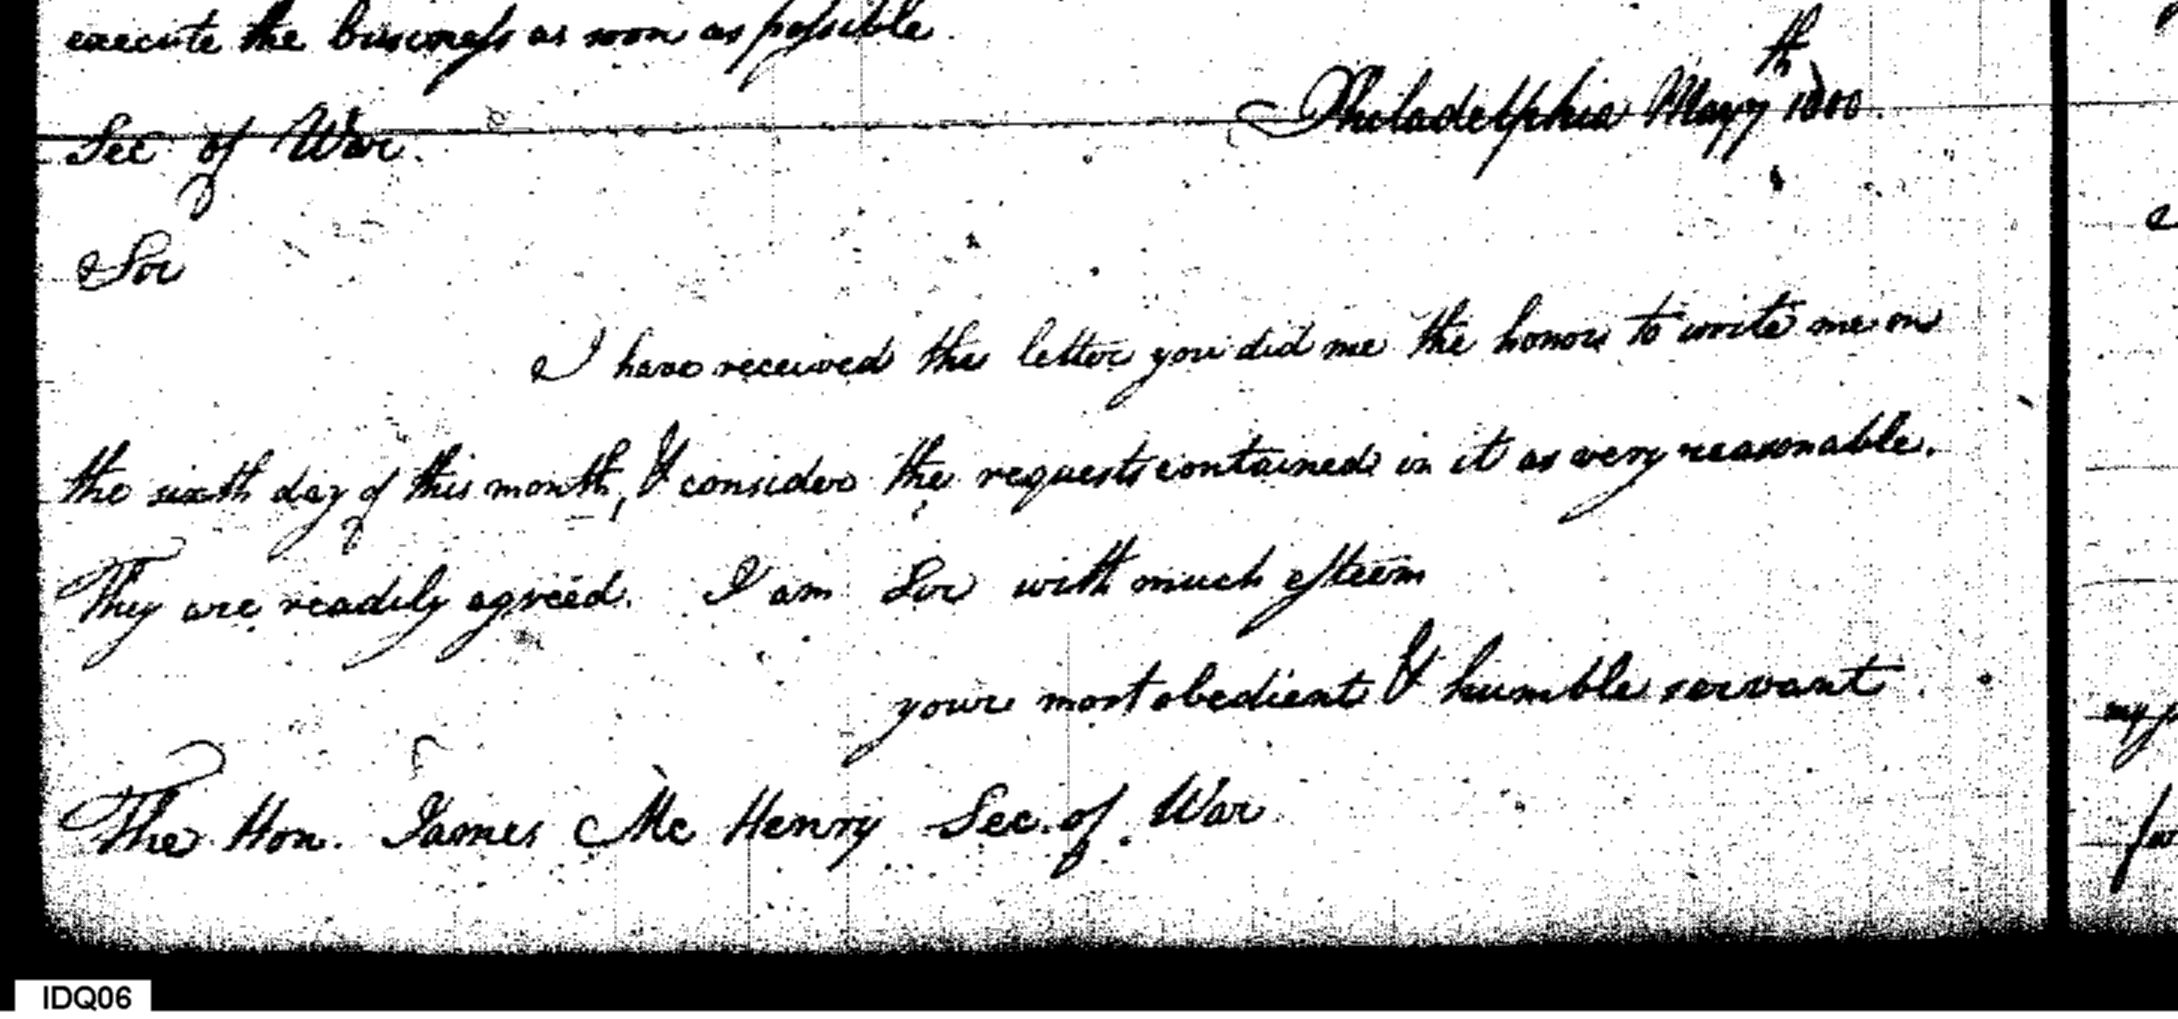 execute the business as soon as possible.
Philadelphia May 7th 1800.
Sec of War.
Sir
I have received the letter you did me the honor to write me on
the sixth day of this month, & consider the requests contained in it as very reasonable.
They are readily agreed. I am Sir with much esteem
your most obedient & humble servant.
The Hon. James Mc Henry Sec. of War.
my
IDQ06